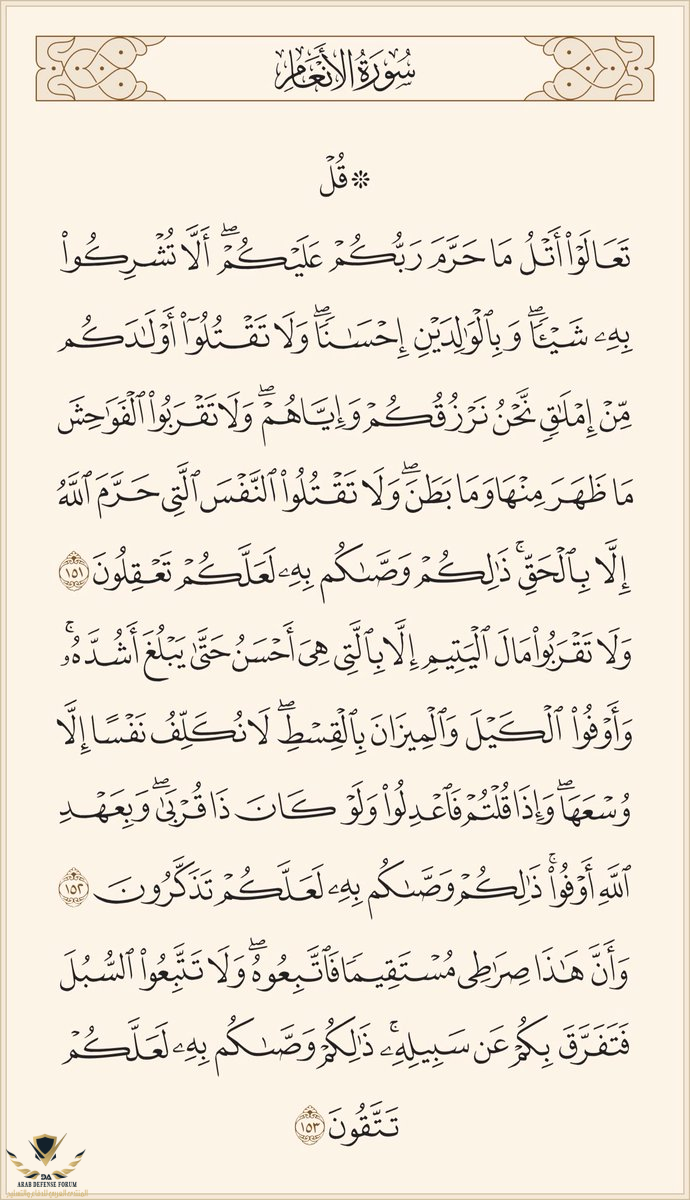 سُورَةُ الأَنْعَامِ
۞ قُلْ
تَعَالَوْا۟ أَتْلُ مَا حَرَّمَ رَبُّكُمْ عَلَيْكُمْ ۖ أَلَّا تُشْرِكُوا۟
بِهِۦ شَيْـًٔا ۖ وَبِٱلْوَٰلِدَيْنِ إِحْسَـٰنًا ۖ وَلَا تَقْتُلُوٓا۟ أَوْلَـٰدَكُم
مِّنْ إِمْلَـٰقٍ ۖ نَّحْنُ نَرْزُقُكُمْ وَإِيَّاهُمْ ۖ وَلَا تَقْرَبُوا۟ ٱلْفَوَٰحِشَ
مَا ظَهَرَ مِنْهَا وَمَا بَطَنَ ۖ وَلَا تَقْتُلُوا۟ ٱلنَّفْسَ ٱلَّتِى حَرَّمَ ٱللَّهُ
إِلَّا بِٱلْحَقِّ ۚ ذَٰلِكُمْ وَصَّىٰكُم بِهِۦ لَعَلَّكُمْ تَعْقِلُونَ ١٥١
وَلَا تَقْرَبُوا۟ مَالَ ٱلْيَتِيمِ إِلَّا بِٱلَّتِى هِىَ أَحْسَنُ حَتَّىٰ يَبْلُغَ أَشُدَّهُۥ ۚ
وَأَوْفُوا۟ ٱلْكَيْلَ وَٱلْمِيزَانَ بِٱلْقِسْطِ ۖ لَا نُكَلِّفُ نَفْسًا إِلَّا
وُسْعَهَا ۖ وَإِذَا قُلْتُمْ فَٱعْدِلُوا۟ وَلَوْ كَانَ ذَا قُرْبَىٰ ۖ وَبِعَهْدِ
ٱللَّهِ أَوْفُوا۟ ۚ ذَٰلِكُمْ وَصَّىٰكُم بِهِۦ لَعَلَّكُمْ تَذَكَّرُونَ ١٥٢
وَأَنَّ هَـٰذَا صِرَٰطِى مُسْتَقِيمًا فَٱتَّبِعُوهُ ۖ وَلَا تَتَّبِعُوا۟ ٱلسُّبُلَ
فَتَفَرَّقَ بِكُمْ عَن سَبِيلِهِۦ ۚ ذَٰلِكُمْ وَصَّىٰكُم بِهِۦ لَعَلَّكُمْ
تَتَّقُونَ ١٥٣
DA
ARAB DEFENSE FORUM
المنتدى العربي للدفاع والتسليح